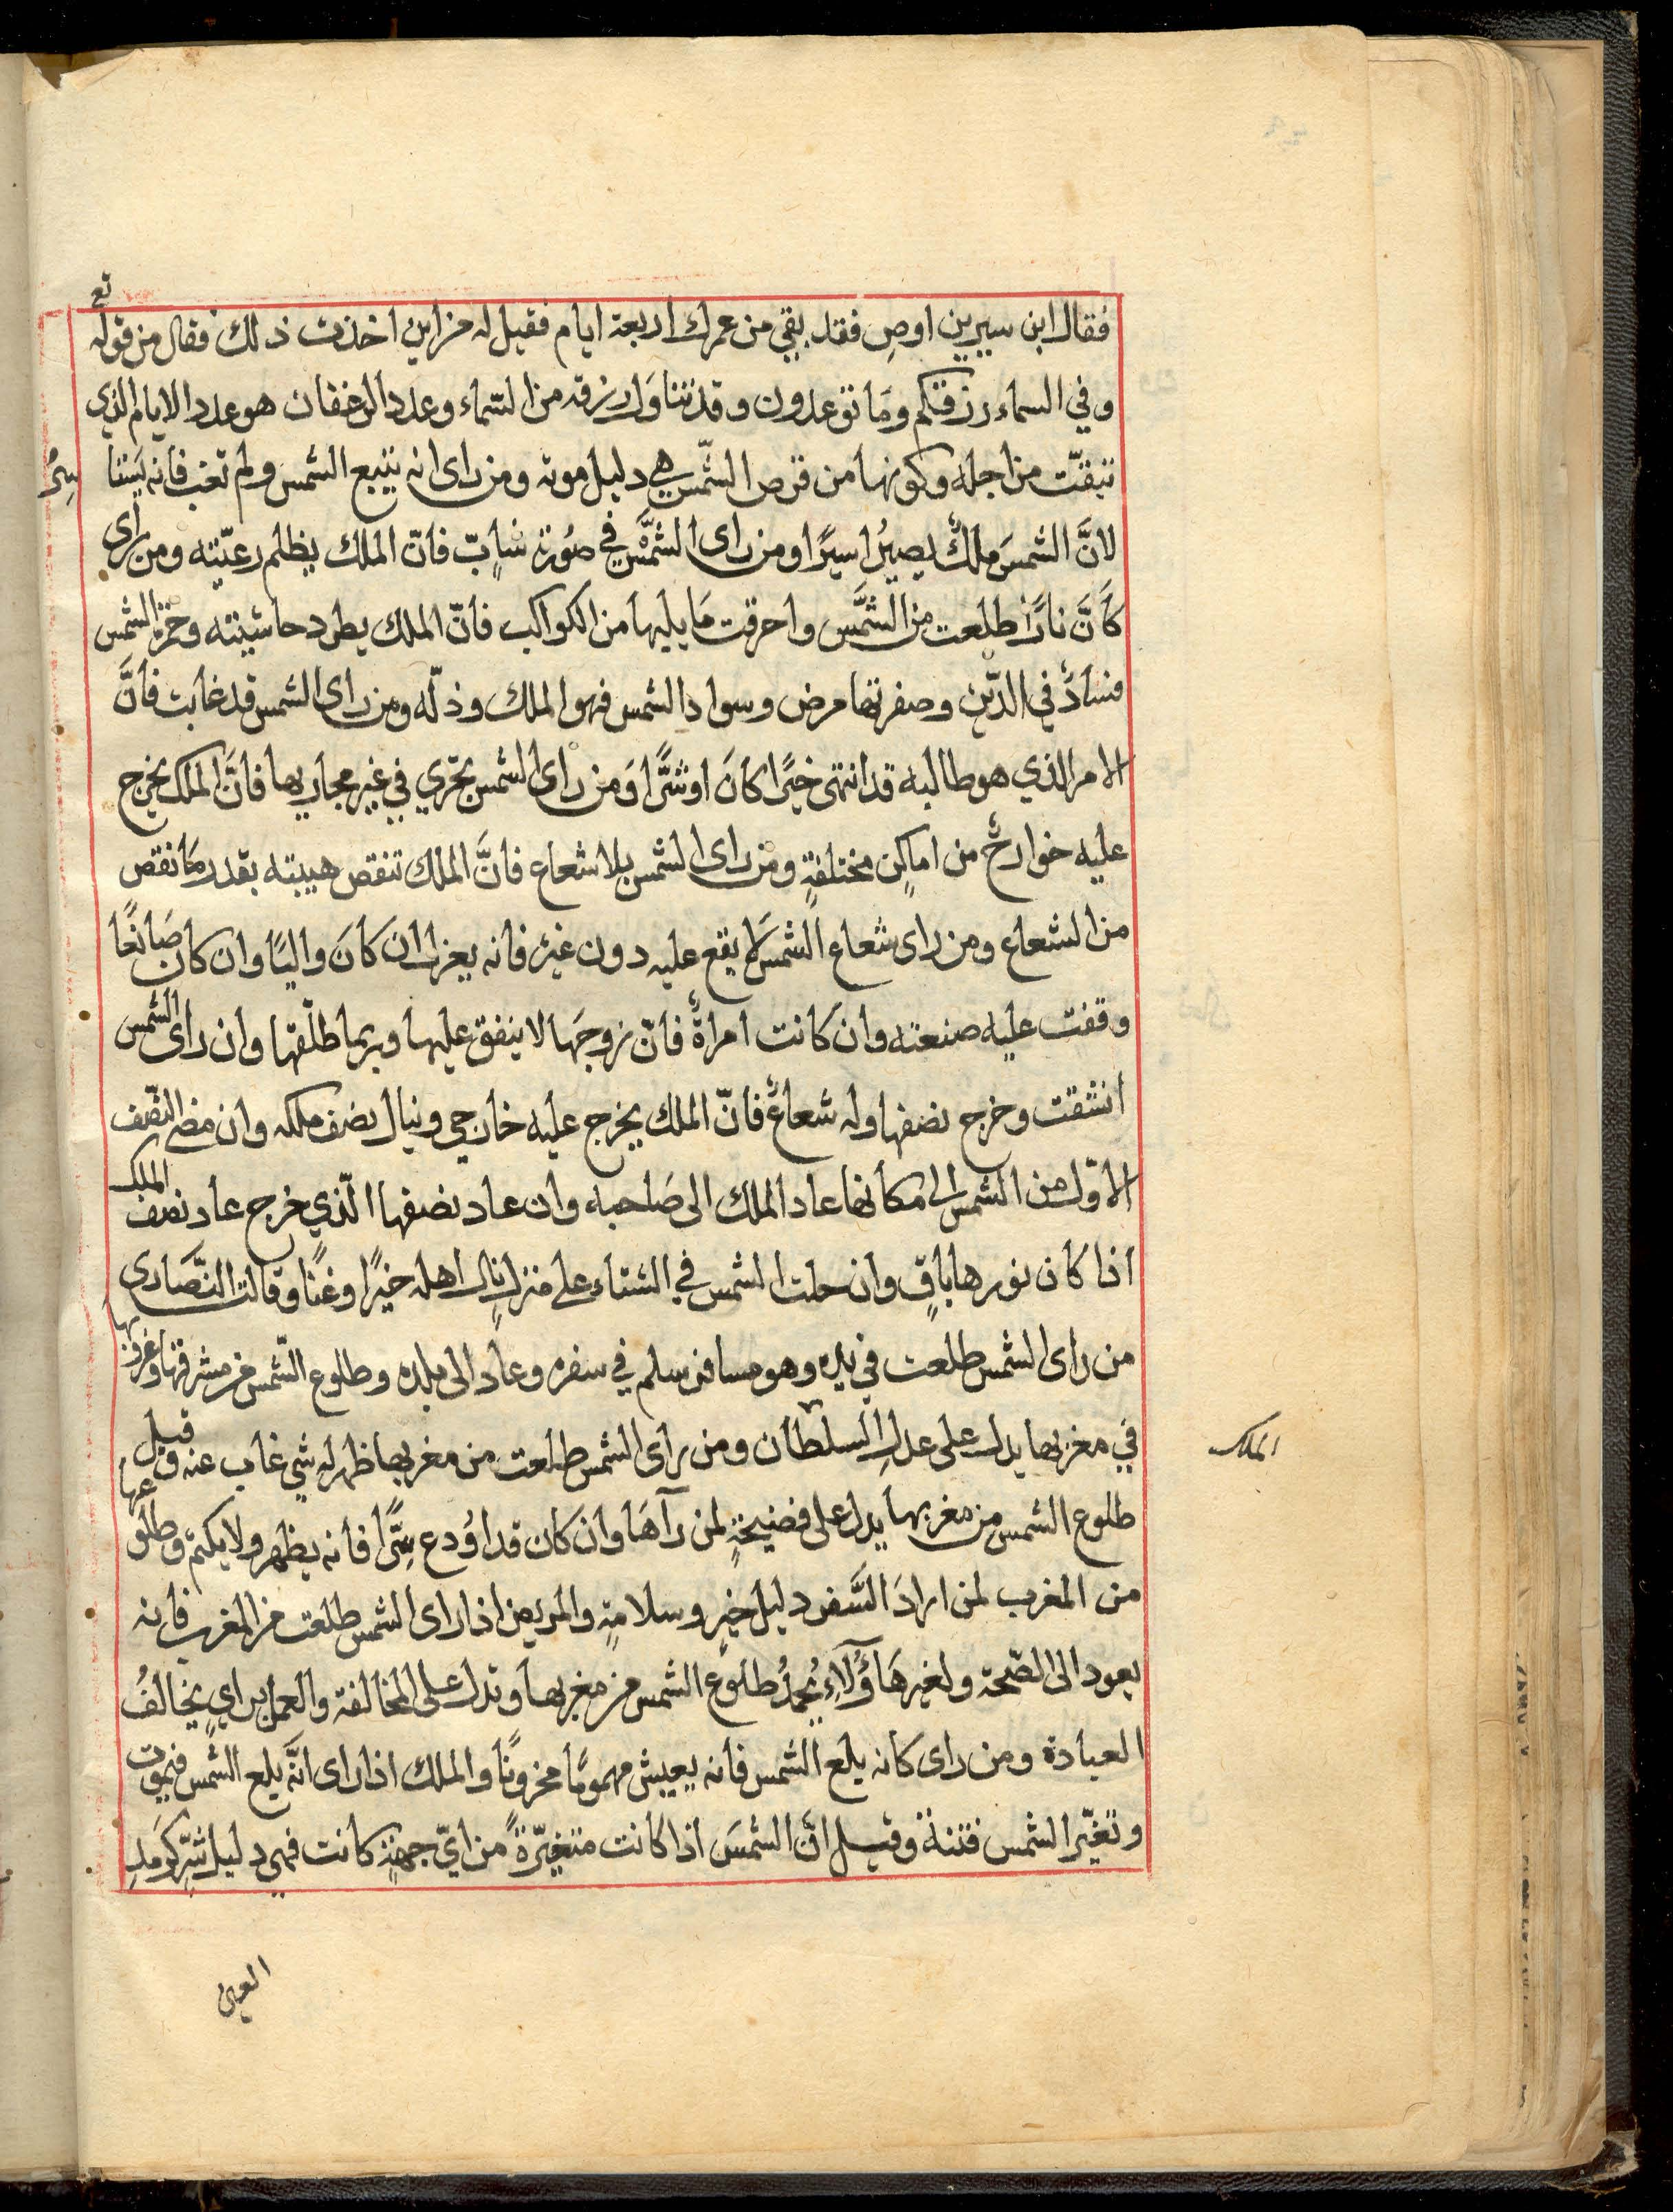 فقال ابن سيرين اوصِ فقد بقي من عمرك اربعة ايام فقيل له من اين اخذت ذلك فقال من قوله تع
وفي السماء رزقكم ومَا توعدون وقد تناوَل رزقه من السّماء وعدد الرغفان هو عدد الايام الذي
تبقّت من اجله وكونها من قرص الشّمس هي دليل موته ومن راى انه يتبع الشمس ولم تغب فانه يستاسرُ
لانَّ الشمسَ ملكٌ يصيرُ اسيرًا ومن راى الشمَّس في صُورة شابّ فانّ الملك يظلم رعيّته ومن راى
كاَنَّ نارًا طلعت من الشَّمس واحرقت مَا يليها من الكواكب فانّ الملك يطرد حاشيته وحمرة الشمس
فسادٌ في الدّين وصفرتها مرض وسواد الشمس فهو الملك وذلّه ومن راى الشمس قد غابت فانَّ
الامر الذي هو طالبه قد انتهى خيرًا كانَ او شرًّا وَمن راى الشمس تجري في غير مجاريها فانَّ الملك يخرج
عليه خوارجٌ من اماكِن مختلفةٍ ومن راى الشمس بلا شعاع فانَّ الملك تنقص هيبته بقدر مَا نقص
من الشعاع ومن راى شعاع الشمس لَا يقع عليه دون غيره فانه يعزل ان كانَ واليًا وان كان صَانعًا
وقفت عليه صنعته وان كانت امراةً فانّ زوجَها لا ينفق عليها وربما طلّقها وان راى الشمس
انشقت وخرج نصفها وله شعاعٌ فانّ الملك يخرج عليه خارجي وينال نصف ملكه وان مضى النصّف
الاوّل من الشمس الى مكانها عاد الملك الى صَاحبه وان عاد نصفها الّذي خرج عاد نصف الملك
اذا كان نورها باقٍ وان حلت الشمس في الشتاء على منزلٍ نال اهله خيرًا وغنًا وقالت النَّصَارى
من راى الشمس طلعت في يده وهو مسافر سلم في سفره وعاد الى بلده وطلوع الشّمس من مشرقها وغروبها
في مغربها يدل على عدلِ السلطان ومن راى الشمس طلعت من مغربها ظهر له شي غاب عنه وقيل
الملك
طلوع الشمس من مغربها يدل على فضيحةٍ لمن رآهَا وان كان قد اوُدع سِرًّا فانه يظهر ولا يكتم وطلوعها
من المغرب لمن ارادَ السَّفر دليل خيرٍ وسلامةٍ والمريض اذا راى الشمس طلعت من المغرب فانه
يعود الى الصّحة ولغير هَاؤُلَآءِ يُحمدُ طلوع الشمس من مغربها وتدل على المخالفة والعمل براي يخالفُ
العبادة ومن راى كانه بلع الشمس فانه يعيش مهمومًا محزونًا والملك اذا راى انَّه بلع الشمس فيموت
وتغيّر الشمس فتنة وقيل انَّ الشمسَ اذا كانت متغيّرةً من ايّ جهةٍ كانت فهي دليل شرٍّ كرَمَدِ
العين